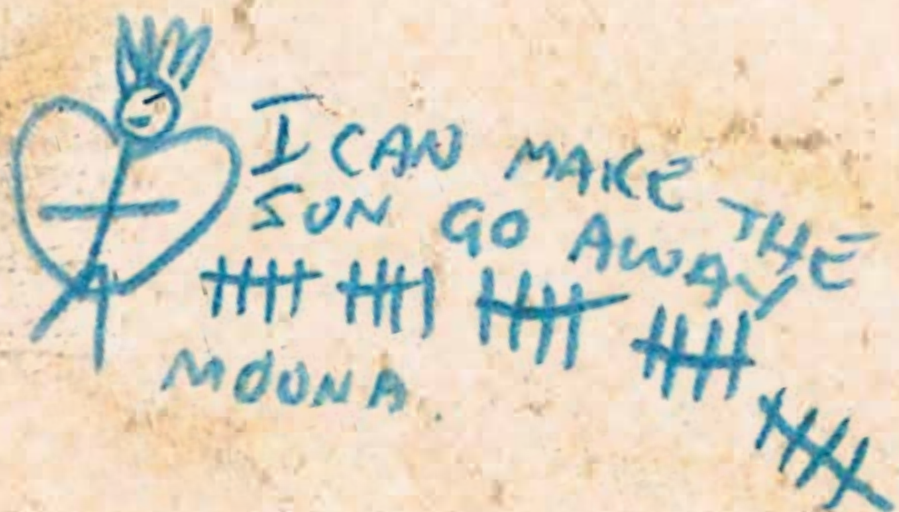 I CAN MAKE THE
SUN GO AWAY
MOONA.